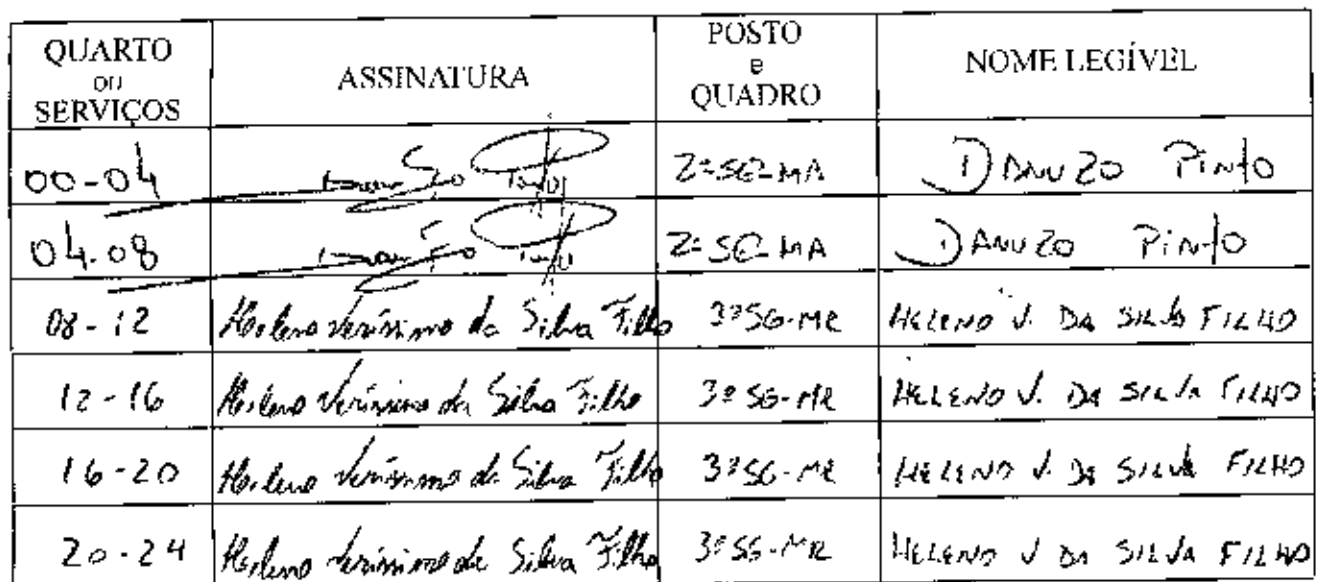 QUARTO ou SERVIÇOS ASSINATURA POSTO e QUADRO NOME LEGÍVEL
00-04 2º SG-MA DANUZO Pinto
04-08 2º SG-MA DANUZO Pinto
08-12 Heleno Veríssimo da Silva Filho 3º SG-MR HELENO V. DA SILVA FILHO
12-16 Heleno Veríssimo da Silva Filho 3º SG-MR HELENO V. DA SILVA FILHO
16-20 Heleno Veríssimo da Silva Filho 3º SG-MR HELENO V. DA SILVA FILHO
20-24 Heleno Veríssimo da Silva Filho 3º SG-MR HELENO V DA SILVA FILHO